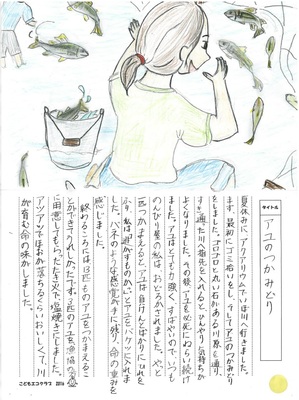 タイトル
アユのつかみどり
夏休みに、アクアリウムでいほ川へ行きました。
まず、最初にゴミ拾いをし、そしてアユのつかみどり
をしました。ゴロゴロと丸い石がある川原を通り、
すき通った川へ指先を入れると、ひんやり気持ちか
よくなりました。その後、アユを必死にねらい続け
ました。アユはとても力強く、すばやいので、いつも
のんびり屋の私は、おどろかされました。やっと
一匹つかまえると、アユは自行んとばかりにひれを
ふり、私は逃がすものかと、アユをバケツに入れま
した。バネのような感覚が手に残り、命の重みを
感じました。
終わるころには13匹ものアユをつかまえるこ
とができて、うれしかったです。3匹のアユを漁協の
に用意してもらったたき火で、塩焼きにしました。
アツアツでほおが落ちるくらいおいしくて、川
が育む命の味がしました。
こどもエコクラブ 2016